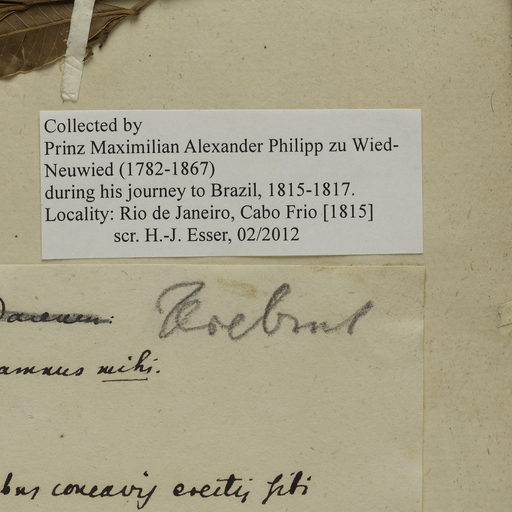 Collected by
Prinz Maximilian Alexander Philipp zu Wied-
Neuwied (1782-1867)
during his journey to Brazil, 1815-1817.
Locality: Rio de Janeiro, Cabo Frio [1815]
scr. H.-J. Esser, 02/2012
amnus mihi.
bus concavis erectis sibi